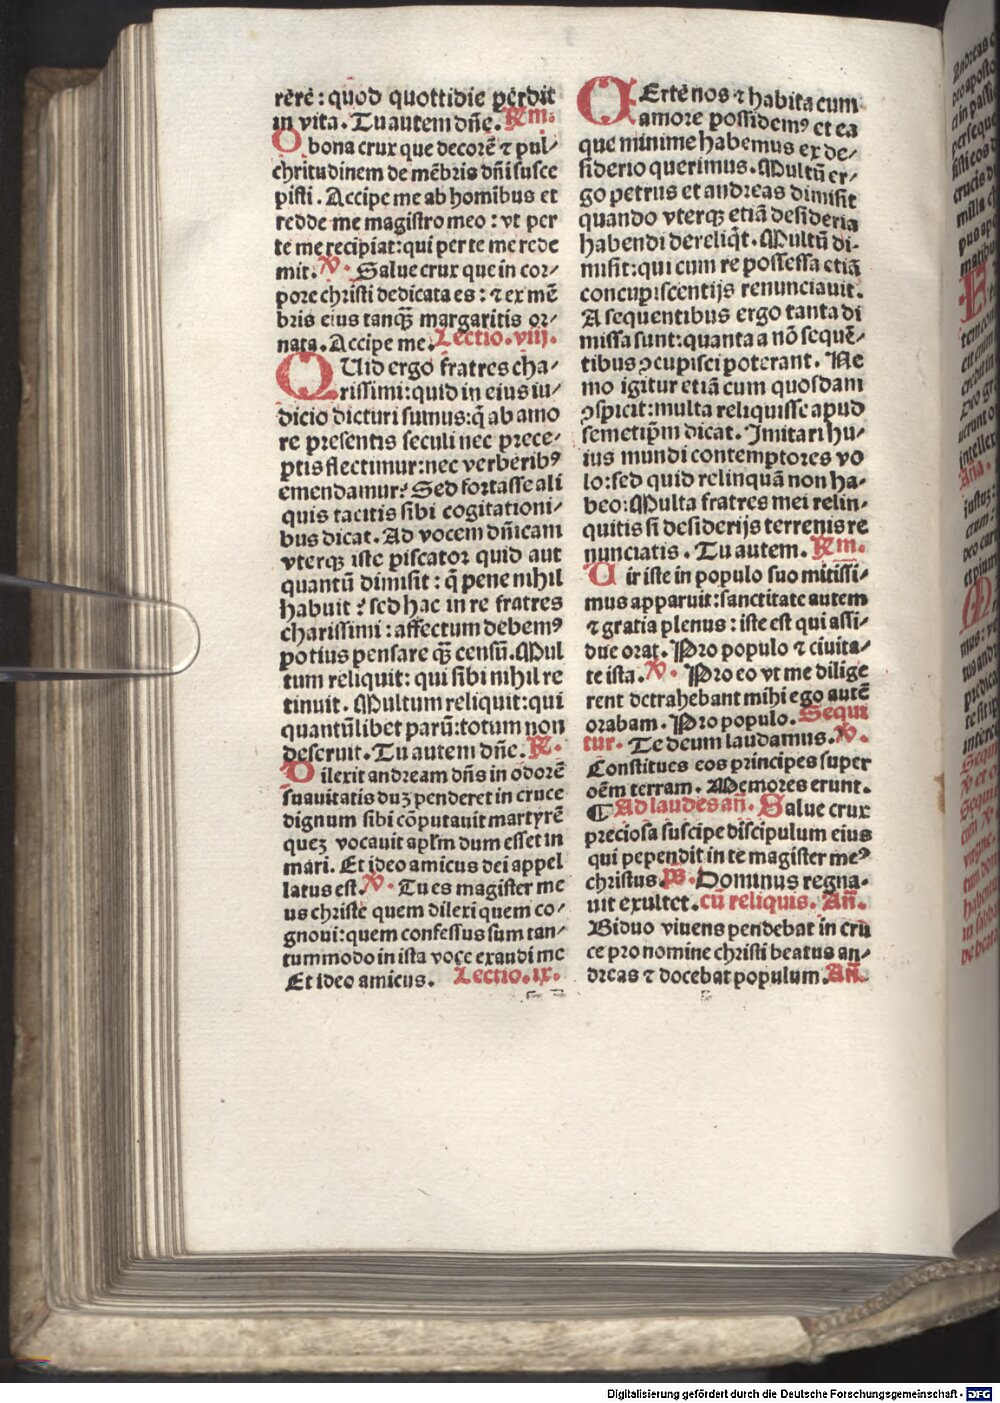 rērē : quod quottidie pērdit
in vita . Tu autem dn̄e . R̄m̄.
O bona crux que decorē ⁊ pul⸗
chritudinem de mēbris dn̄i susce
pisti . Accipe me ab homibus et
redde me magistro meo : vt per
te me recipiat : qui per te me rede
mit . ℣ . Salue crux que in cor⸗
pore christi dedicata es : ⁊ ex mē
bris eius tanqȝ margaritis or⸗
nata . Accipe me . Lectio . viij .
QUid ergo fratres cha⸗
rissimi : quid in eius iu⸗
dicio dicturi sumus : q̄ ab amo
re presentis seculi nec prece⸗
ptis flectimur : nec verberibꝰ
emendamur ? Sed fortasse ali
quis tacitis sibi cogitationi⸗
bus dicat . Ad vocem dn̄icam
vterqȝ iste piscator quid aut
quantū dimisit : q̄ pene nihil
habuit ? sed hac in re fratres
charissimi : affectum debemꝰ
potius pensare qȝ̄ censū . Mul
tum reliquit : qui sibi nihil re
tinuit . Multum reliquit : qui
quantūlibet parū : totum non
deseruit . Tu autem dn̄e . ℟ .
Dilexit andream dn̄s in odorē
suauitatis duȝ penderet in cruce
dignum sibi cōputauit martyrē
queȝ vocauit apl̄m dum esset in
mari . Et ideo amicus dei appel
latus est . ℣ . Tu es magister me
us christe quem dilexi quem co⸗
gnoui : quem confessus sum tan⸗
tummodo in ista voce exaudi me
Et ideo amicus . Lectio . ix .
OErte nos ⁊ habita cum
amore possidemꝰ et ea
que minime habemus ex de⸗
siderio querimus . Multū er⸗
go petrus et andreas dimisit
quando vterqȝ etiā desideria
habendi dereliq̄t . Multū di⸗
misit : qui cum re possessa etiā
concupiscentijs renunciauit .
A sequentibus ergo tanta di
missa sunt : quanta a nō sequē⸗
tibus ꝯcupisci poterant . Ne
mo igitur etiā cum quosdam
ꝯspicit : multa reliquisse apud
semetip̄m dicat . Imitari hu⸗
ius mundi contemptores vo
lo : sed quid relinquā non ha⸗
beo : Multa fratres mei relin⸗
quitis si desiderijs terrenis re
nunciatis . Tu autem . R̄m̄.
Uir iste in populo suo mitissi⸗
mus apparuit : sanctitate autem
⁊ gratia plenus : iste est qui assi⸗
due orat . Pro populo ⁊ ciuita⸗
te ista . ℣ . Pro eo vt me dilige
rent detrahebant mihi ego autē
orabam . Pro populo . Sequi
tur . Te deum laudamus . ℣ .
Constitues eos principes super
oēm terram . Memores erunt .
¶ Ad laudes an̄ . Salue crux
preciosa suscipe discipulum eius
qui pependit in te magister meꝰ
christus . p̄s . Dominus regna⸗
uit exultet . cū reliquis . An̄ .
Biduo viuens pendebat in cru
ce pro nomine christi beatus an⸗
dreas ⁊ docebat populum . An̄
Digitalisierung gefördert durch die Deutsche Forschungsgemeinschaft - DFG